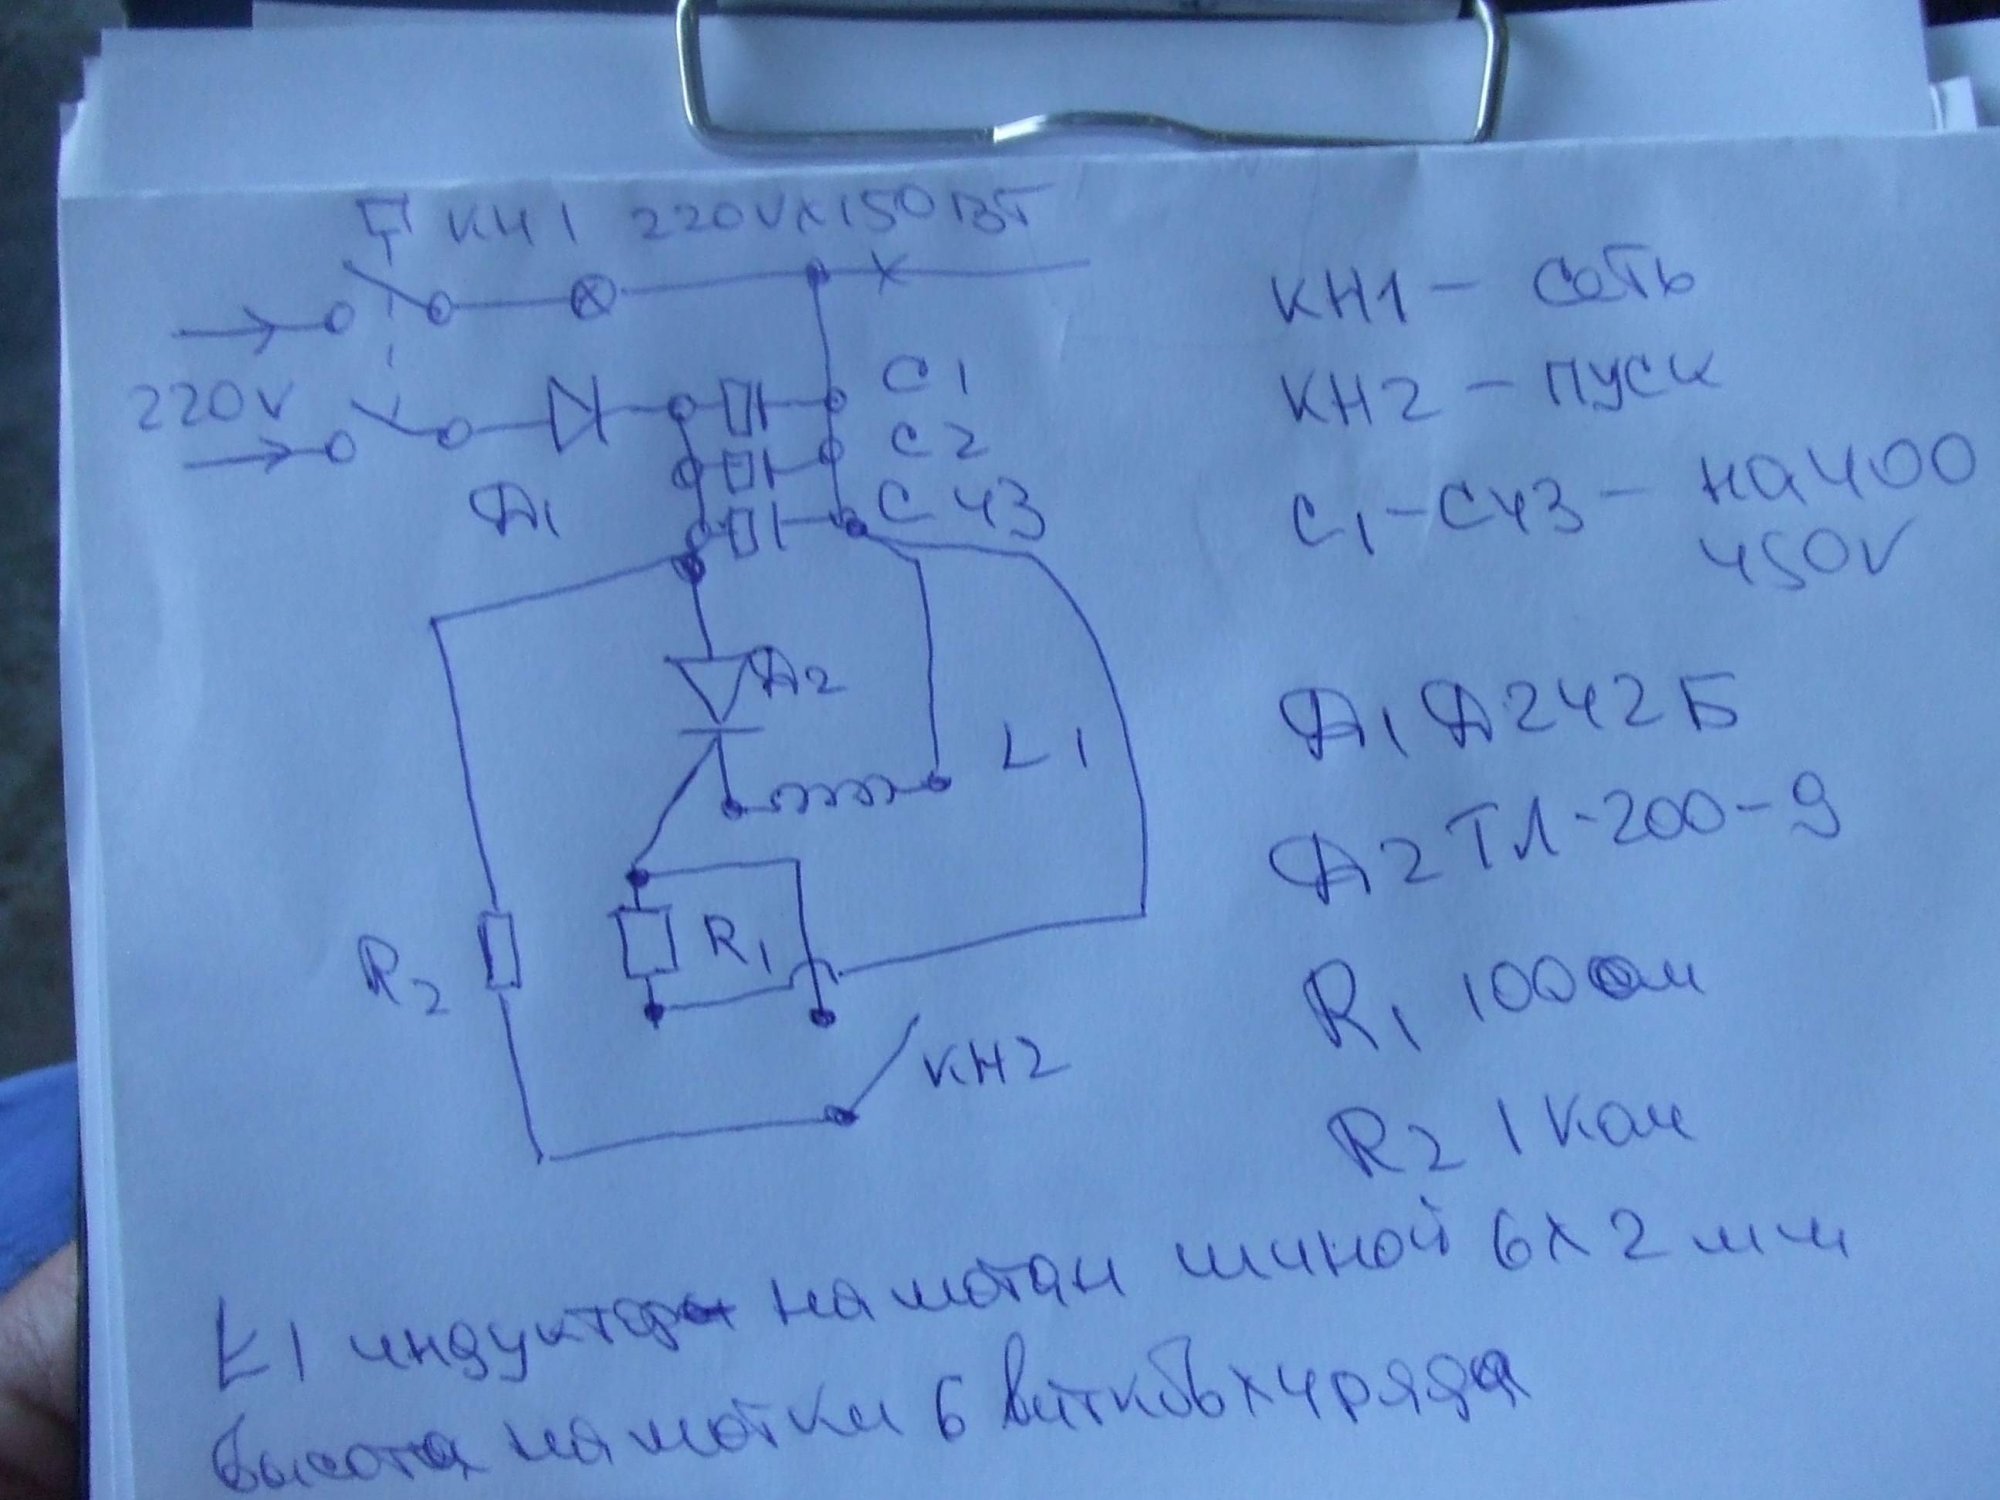 КН1 220V X 150 Вт
220V
C1
C2
C43
Д1
Д2
L1
R1
R2
КН2
КН1 – сеть
КН2 – пуск
C1-C43 – на 400
450V
Д1 Д242Б
Д2 ТЛ-200-9
R1 100 ом
R2 1 Ком
L1 индуктор намотан шиной 6х2 мм
высота намотки 6 витков х 4 ряда